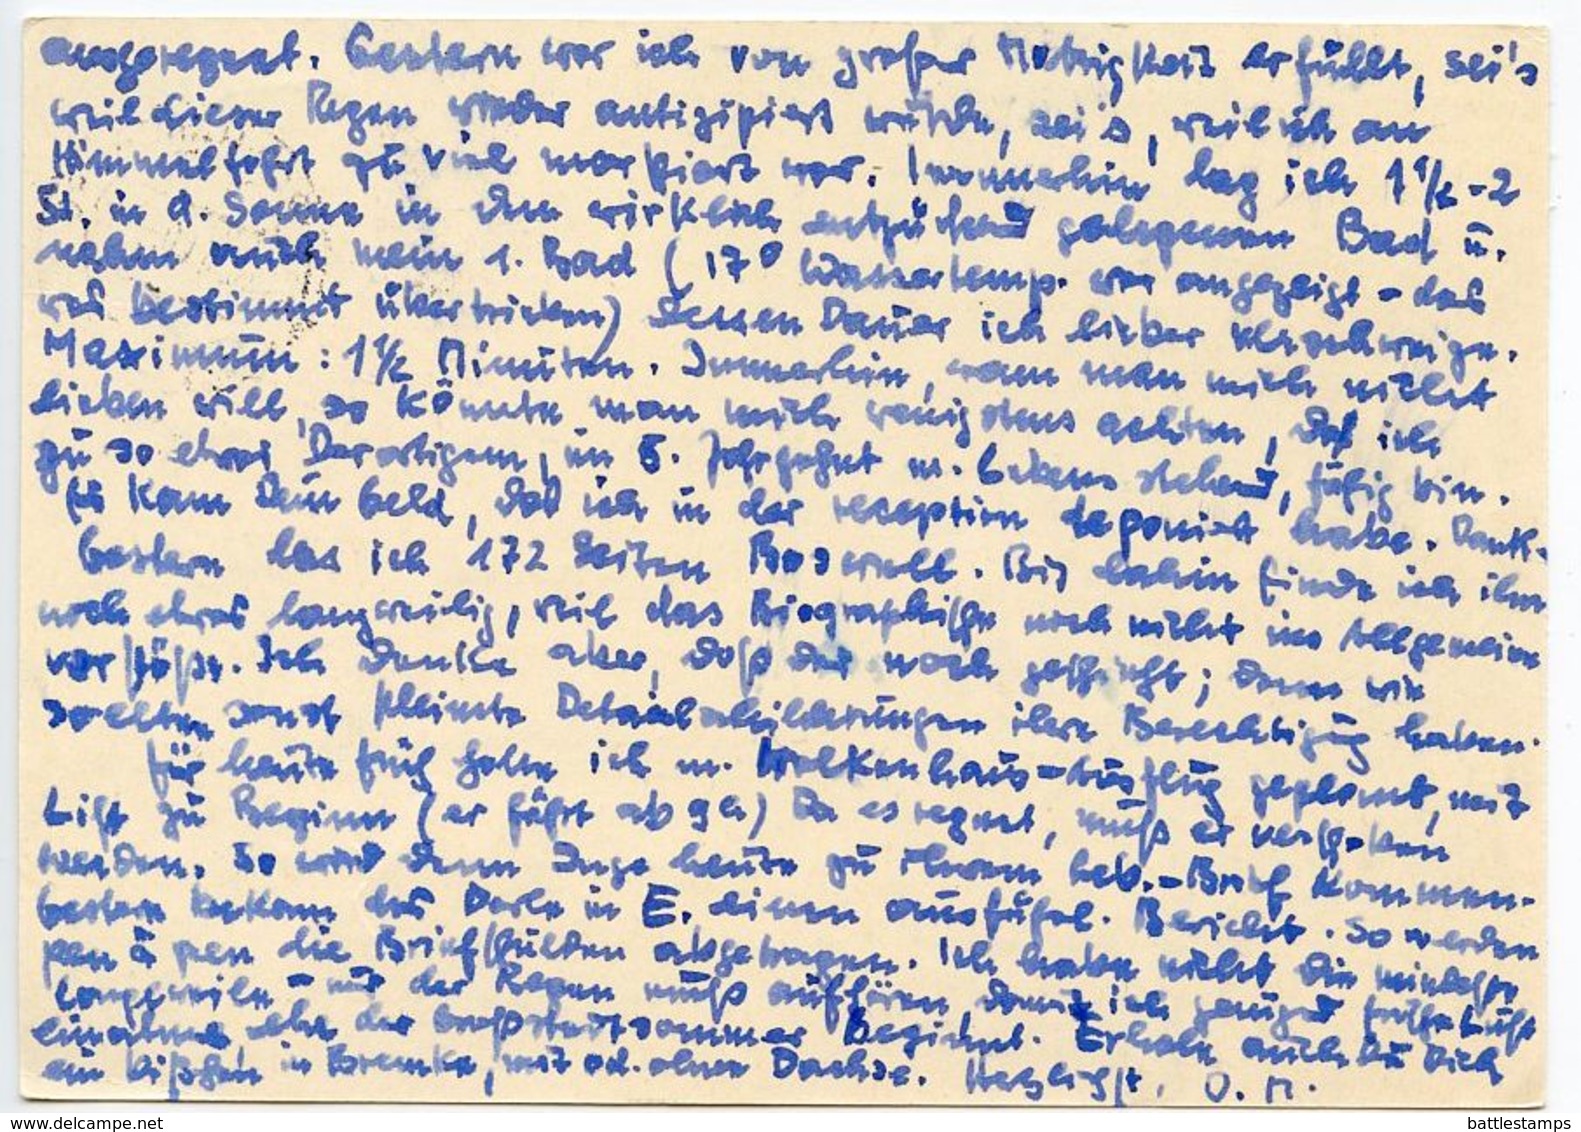 ausgeregnet. Gestern war ich von großer Mutigkeit erfüllt, sei's
weil dieser Regen wieder antizipiert würde, sei's, weil ich an
Himmelfahrt zu viel marschiert war. Immerhin lag ich 1 1/2 - 2
St. in d. Sonne in dem wirklich entzückend gelegenen Bad u.
nahm auch mein 1. Bad (17° Wassertemp. war angezeigt - das
war bestimmt übertrieben) dessen Dauer ich lieber verschweige.
Maximum: 1 1/2 Minuten. Immerhin, wenn man mich nicht
lieben will, so könnte man mich wenigstens achten, daß ich
zu so etwas Derartigem, im 8. Jahrzehnt m. Lebens stehend, fähig bin.
Es kam Dein Geld, das ich in der reception deponiert habe. Dank.
Gestern las ich 172 Seiten Boswell. Bis dahin finde ich ihn
noch etwas langweilig, weil das Biographische noch nicht ins Allgemeine
vorstößt. Ich denke aber, daß das noch geschieht; denn wie
sollten sonst kleinste Detailschilderungen ihre Berechtigung haben.
Für heute früh hatte ich m. Wolkenhaus-Ausflug geplant, mit
Lift zu Beginn (er fährt ab 9 h) Da es regnet, muß er verschoben
werden. So wird denn Inge heute zu ihrem Geb.-Brief kommen.
Gestern bekam das Dorle in E. einen ausführl. Bericht. So werden
peu à peu die Briefschulden abgetragen. Ich habe nicht die mindeste
Langeweile - nur der Regen muß aufhören, damit ich genügend frische Luft
einatme, ehe der Großstadtsommer beginnt. Erhole auch Du Dich
ein bißchen in Bremke, mit od. ohne Dachse. Herzlichst, O. M.
battlestamps